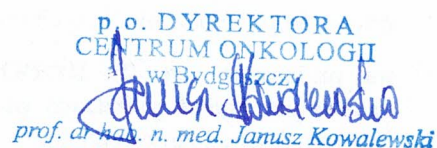 p. o. DYREKTORA
CENTRUM ONKOLOGII
w Bydgoszczy
Janusz Kowalewski
prof. dr hab. n. med. Janusz Kowalewski